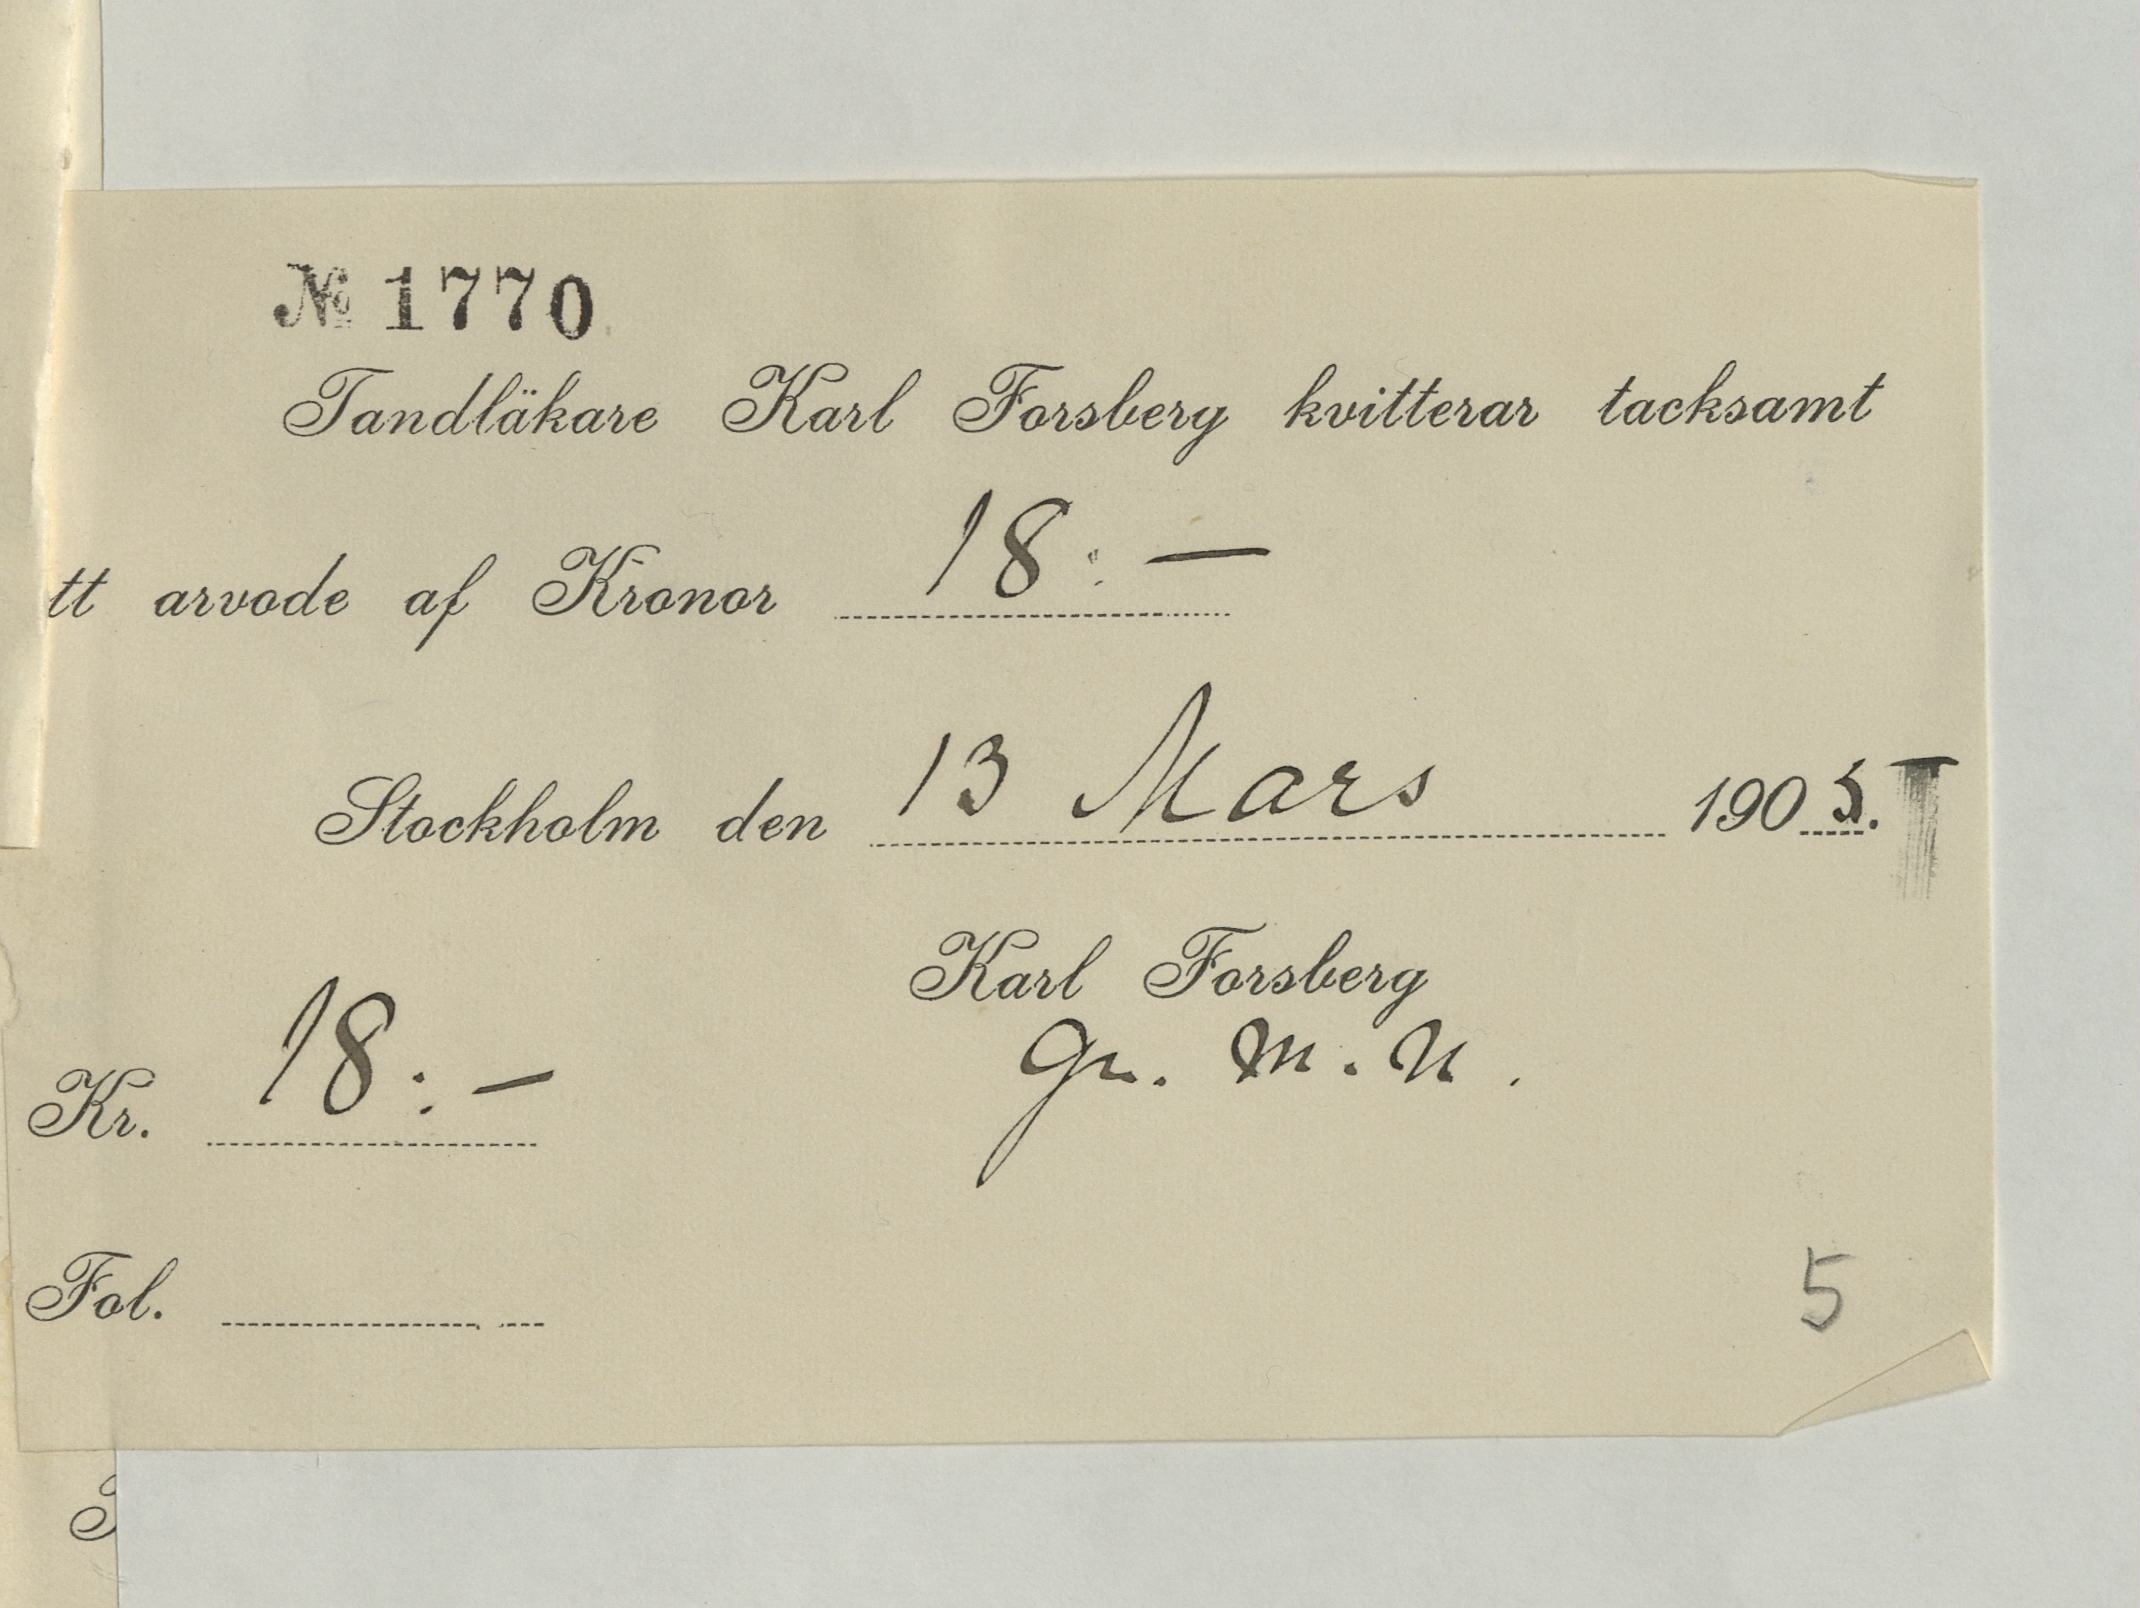 № 1770
Tandläkare Karl Forsberg kvitterar tacksamt
tt arvode af Kronor 18:—
Stockholm den 13 Mars 1905.
Karl Forsberg
gm. M. N.
Kr. 18:—
Fol.
5